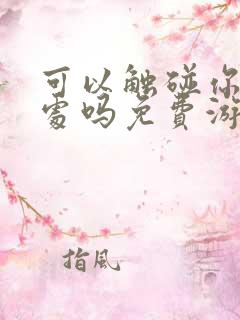 可以触碰你
处吗免费游
指風